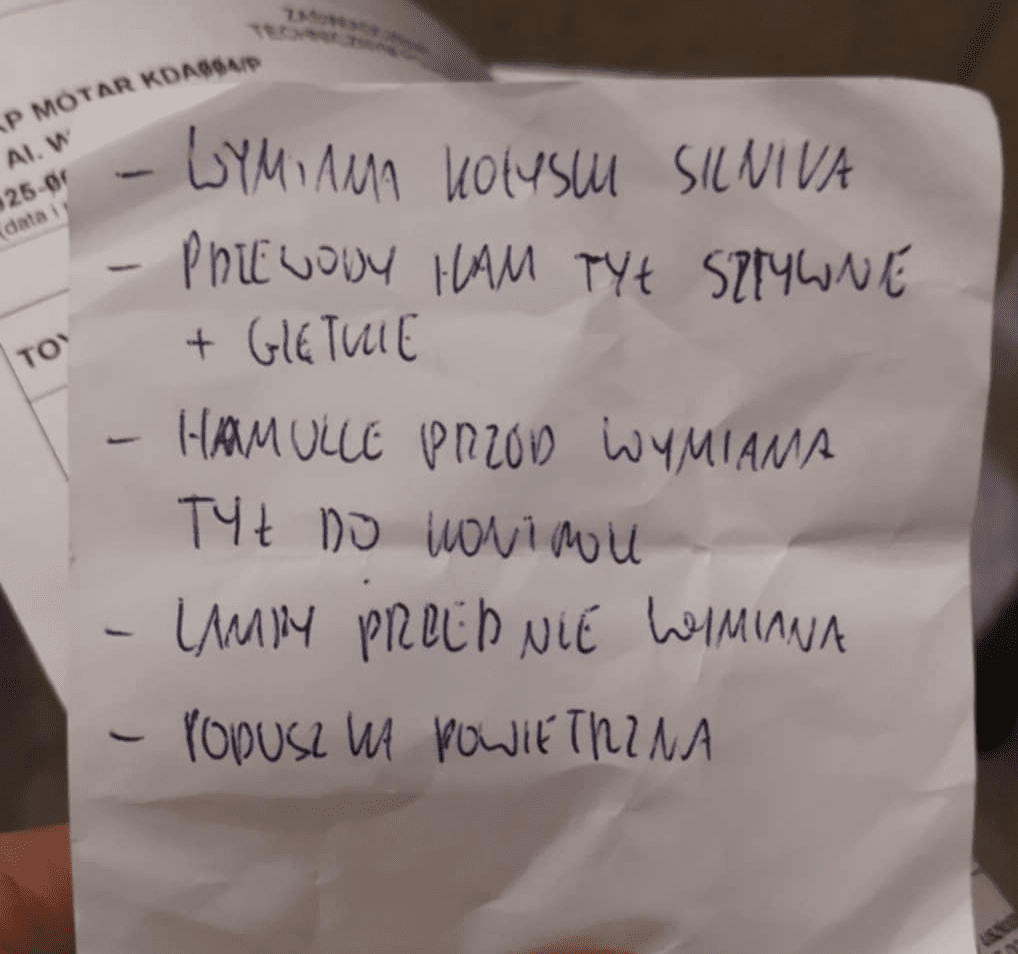 TECHNICZNEGO
AP MOTAR KDA004/P
Al. W
025-0
(data i
TOY
- WYMIANA KOŁYSKI SILNIKA
- PRZEWODY HAM TYŁ SZTYWNE
+ GIĘTKIE
- HAMULCE PRZÓD WYMIANA
TYŁ DO KONTROLI
- LAMPY PRZEDNIE WYMIANA
- PODUSZKA POWIETRZNA